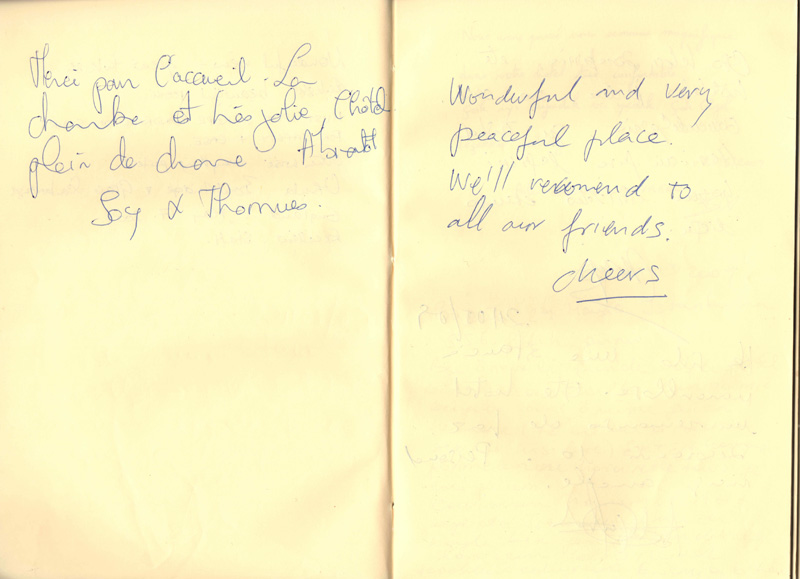 Merci pour l'accueil. La
chambre et très jolie, l'hôtel
plein de charme
& Thomas.
Wonderful and very
peaceful place.
We'll recomend to
all our friends.
cheers